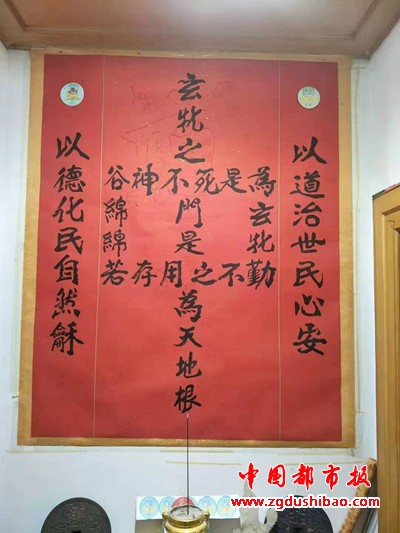 以道治世民心安
玄牝之
谷神不死是為
門是
玄牝
綿綿
若存用之不勤
為天地根
以德化民自然龢
中国都市报
www.zgdushibao.com